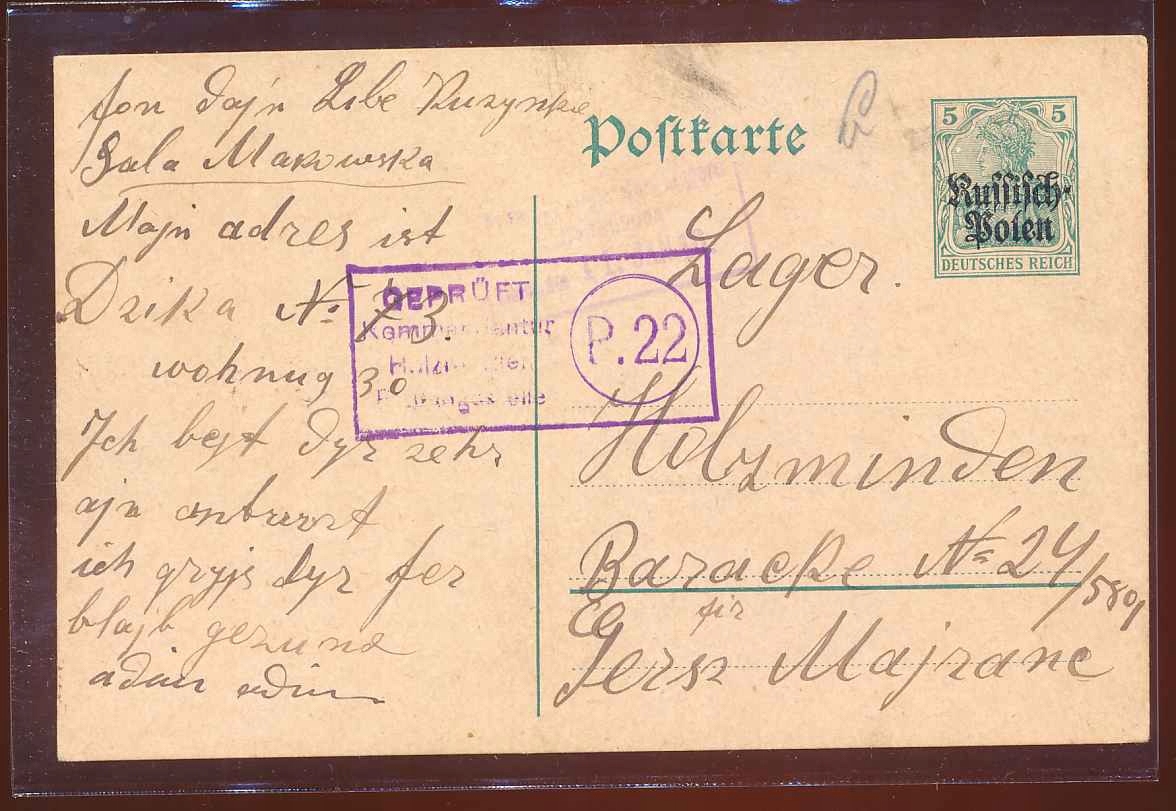 fon dajn Libe Kuzynke
Sala Makowska
Majn adres ist
Dzika № 73.
wohnug 30
Ich bejt dyr zehr
ajn antwort
ich gryjs dyr fer
blajb gezund
Postkarte
5 5
Russisch-
Polen
DEUTSCHES REICH
GEPRÜFT
Kommandantur
Holzminden
P.22
Lager.
Holzminden
Baracke № 24/5801
für
Gersz Majranc